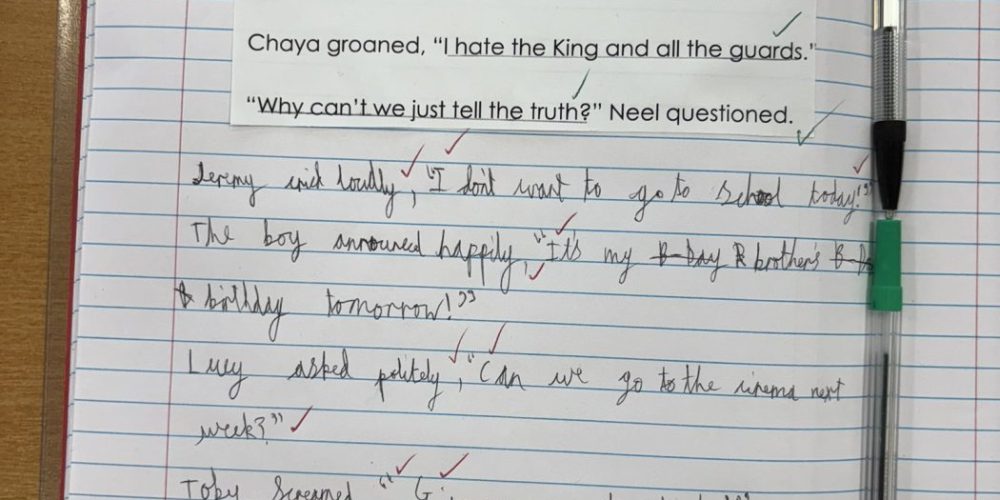 Chaya groaned, “I hate the King and all the guards.”
“Why can’t we just tell the truth?” Neel questioned.
Jeremy cried loudly, “I don't want to go to school today!”
The boy announced happily, “It's my B-Day R brother's B-Da
birthday tomorrow!”
Lucy asked politely, “Can we go to the cinema next
week?”
Toby screamed “